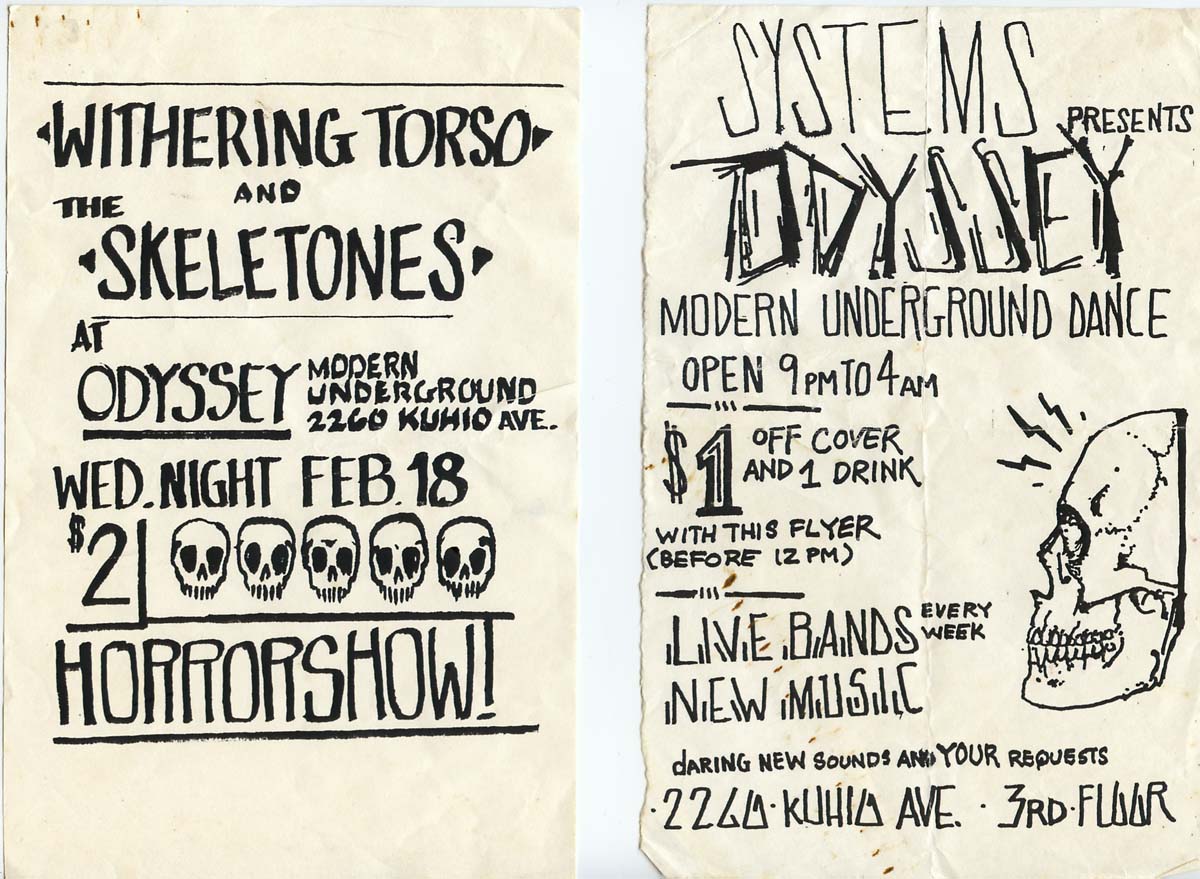 WITHERING TORSO
AND
THE
SKELETONES
AT
ODYSSEY
MODERN
UNDERGROUND
2260 KUHIO AVE.
WED. NIGHT FEB. 18
$2
HORRORSHOW!
SYSTEMS
PRESENTS
ODYSSEY
MODERN UNDERGROUND DANCE
OPEN 9 PM TO 4 AM
$1 OFF COVER
AND 1 DRINK
WITH THIS FLYER
(BEFORE 12 PM)
LIVE BANDS EVERY
WEEK
NEW MUSIC
dARING NEW SOUNDS AND YOUR REQUESTS
·2260·KUHIO AVE. · 3RD·FLOOR